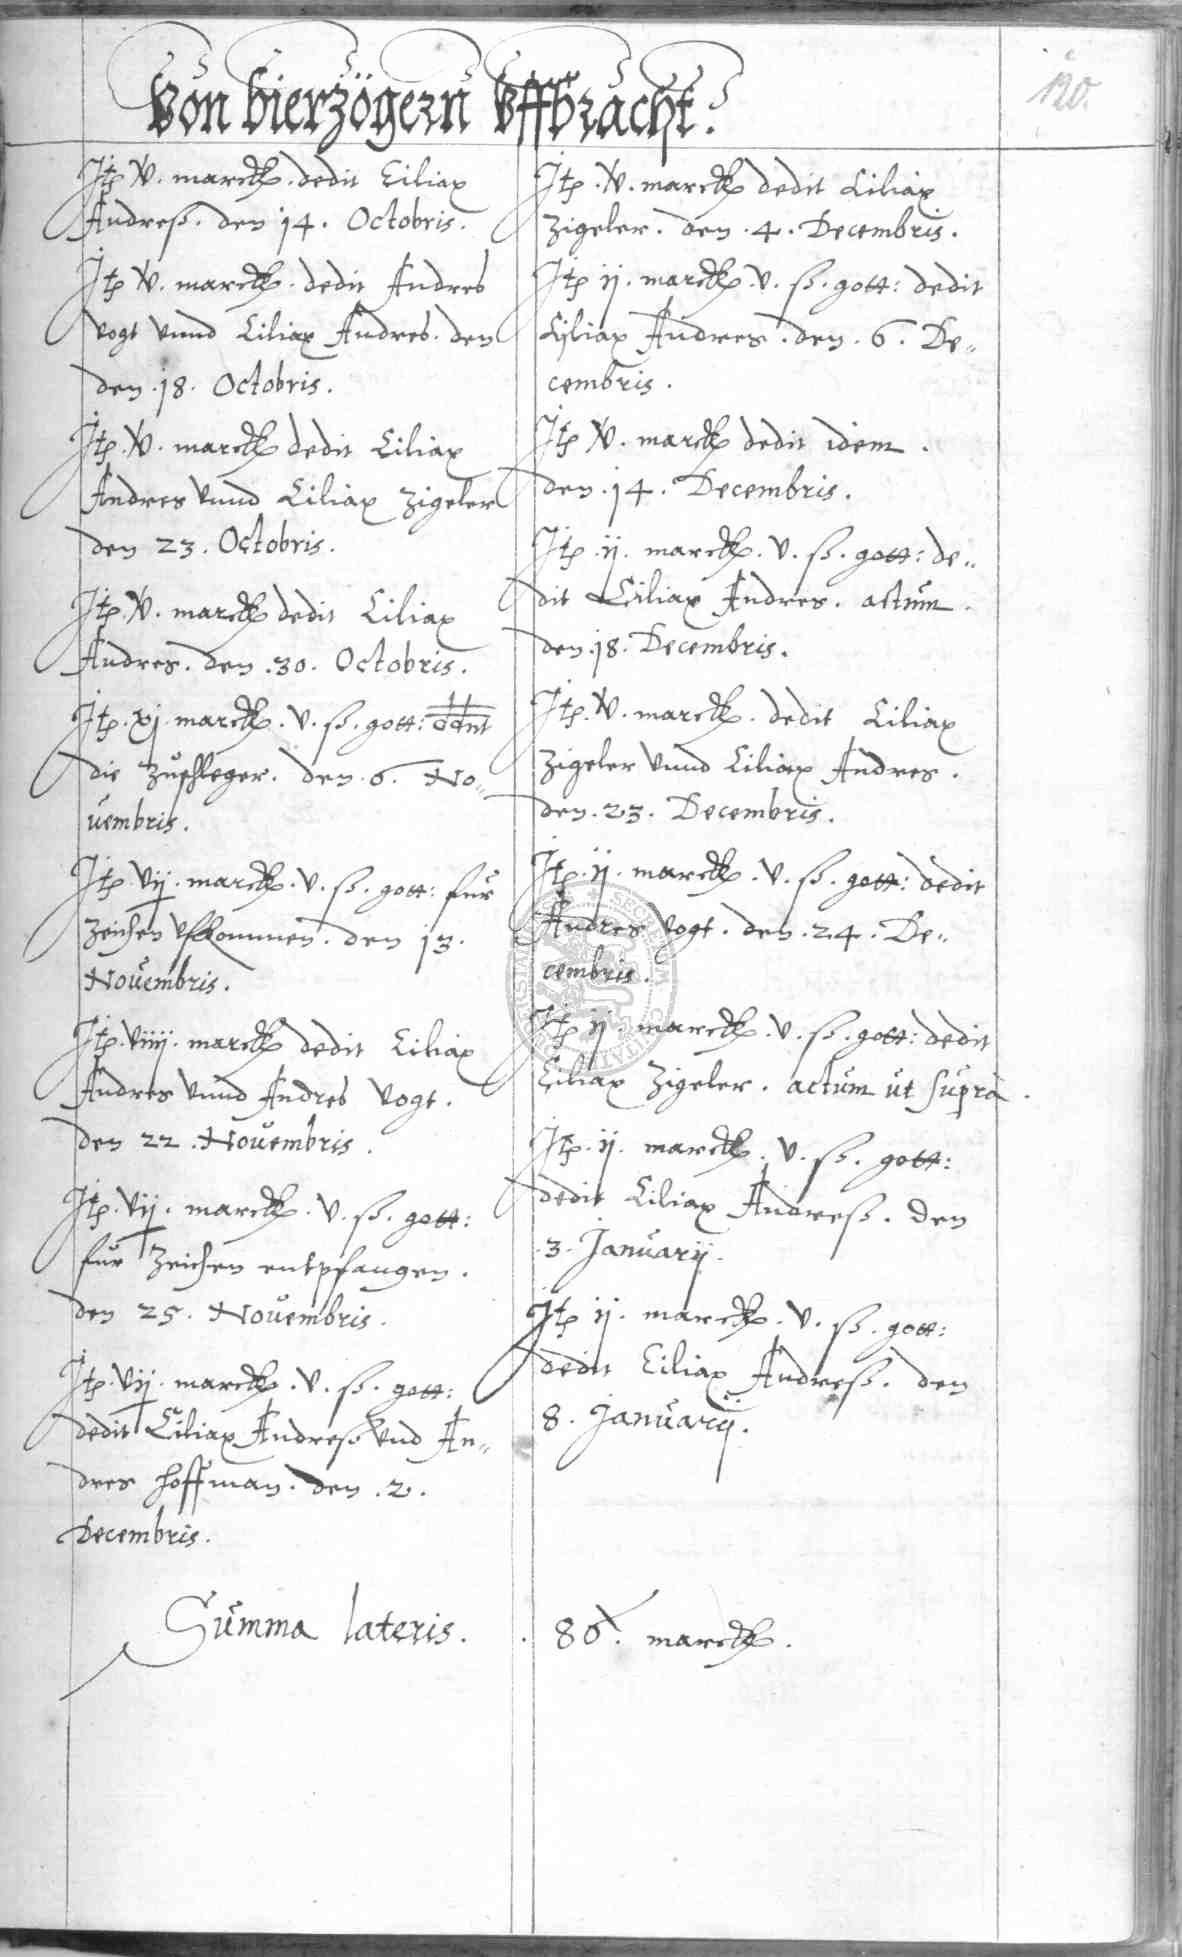 Von bierzögern Vffbracht.
120.
Itp. V. marckh. dedit Ciliax
Andreß. den 14. Octobris.
Itp V. marckh. dedit Andres
Vogt vnnd Ciliax Andres. den
den .18. Octobris.
Itp. V. marckh dedit Ciliax
Andres vnnd Ciliax Zigeler
den 23. Octobris.
Itp. V. marckh dedit Ciliax
Andres. den .30. Octobris.
Itp. xj. marckh. v. ß. gott: ddnt
die Zuschleger. den .6. No„
uembris.
Itp. vij. marckh. v. ß. gott: für
Zeichen vffkommen. den 13.
Nouembris.
Itp. viiij. marckh dedit Ciliax
Andres vnnd Andres Vogt.
den 22. Nouembris.
Itp. vij. marckh. v. ß. gott:
für Zeichen entpfangen.
den 25. Nouembris.
Itp. vij. marckh. v. ß. gott:
dedit Ciliax Andreß vnd An„
dres hoffman. den .2.
Decembris.
Itp. V. marckh dedit Ciliax
Zigeler. den .4. Decembris.
Itp ij. marckh. v. ß. gott: dedit
Ciliax Andres. den .6. De„
cembris.
Itp V. marckh dedit idem.
den .14. Decembris.
Itp .ij. marckh. v. ß. gott: de„
dit Ciliax Andres. actum.
den .18. Decembris.
Itp. V. marckh. dedit Ciliax
Zigeler vnnd Ciliax Andres.
den .23. Decembris.
Itp. ij. marckh. v. ß. gott: dedit
Andres Vogt. den .24. De„
cembris.
Itp ij. marckh. v. ß. gott: dedit
Ciliax Zigeler. actum ut supra.
Itp. ij. marckh. v. ß. gott:
dedit Ciliax Andreß. den
.3. Januarij.
Itp ij. marckh. v. ß. gott:
dedit Ciliax Andreß. den
8. Januarij.
Summa lateris. 86. marckh.